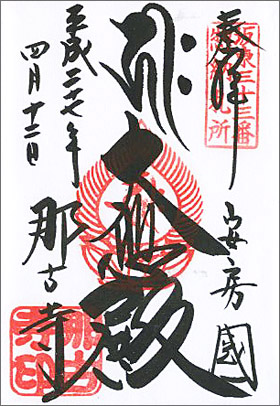 奉拝
坂東三十三番
安房國
大悲殿
平成二十七年
四月十二日
那古寺
那古
寺印